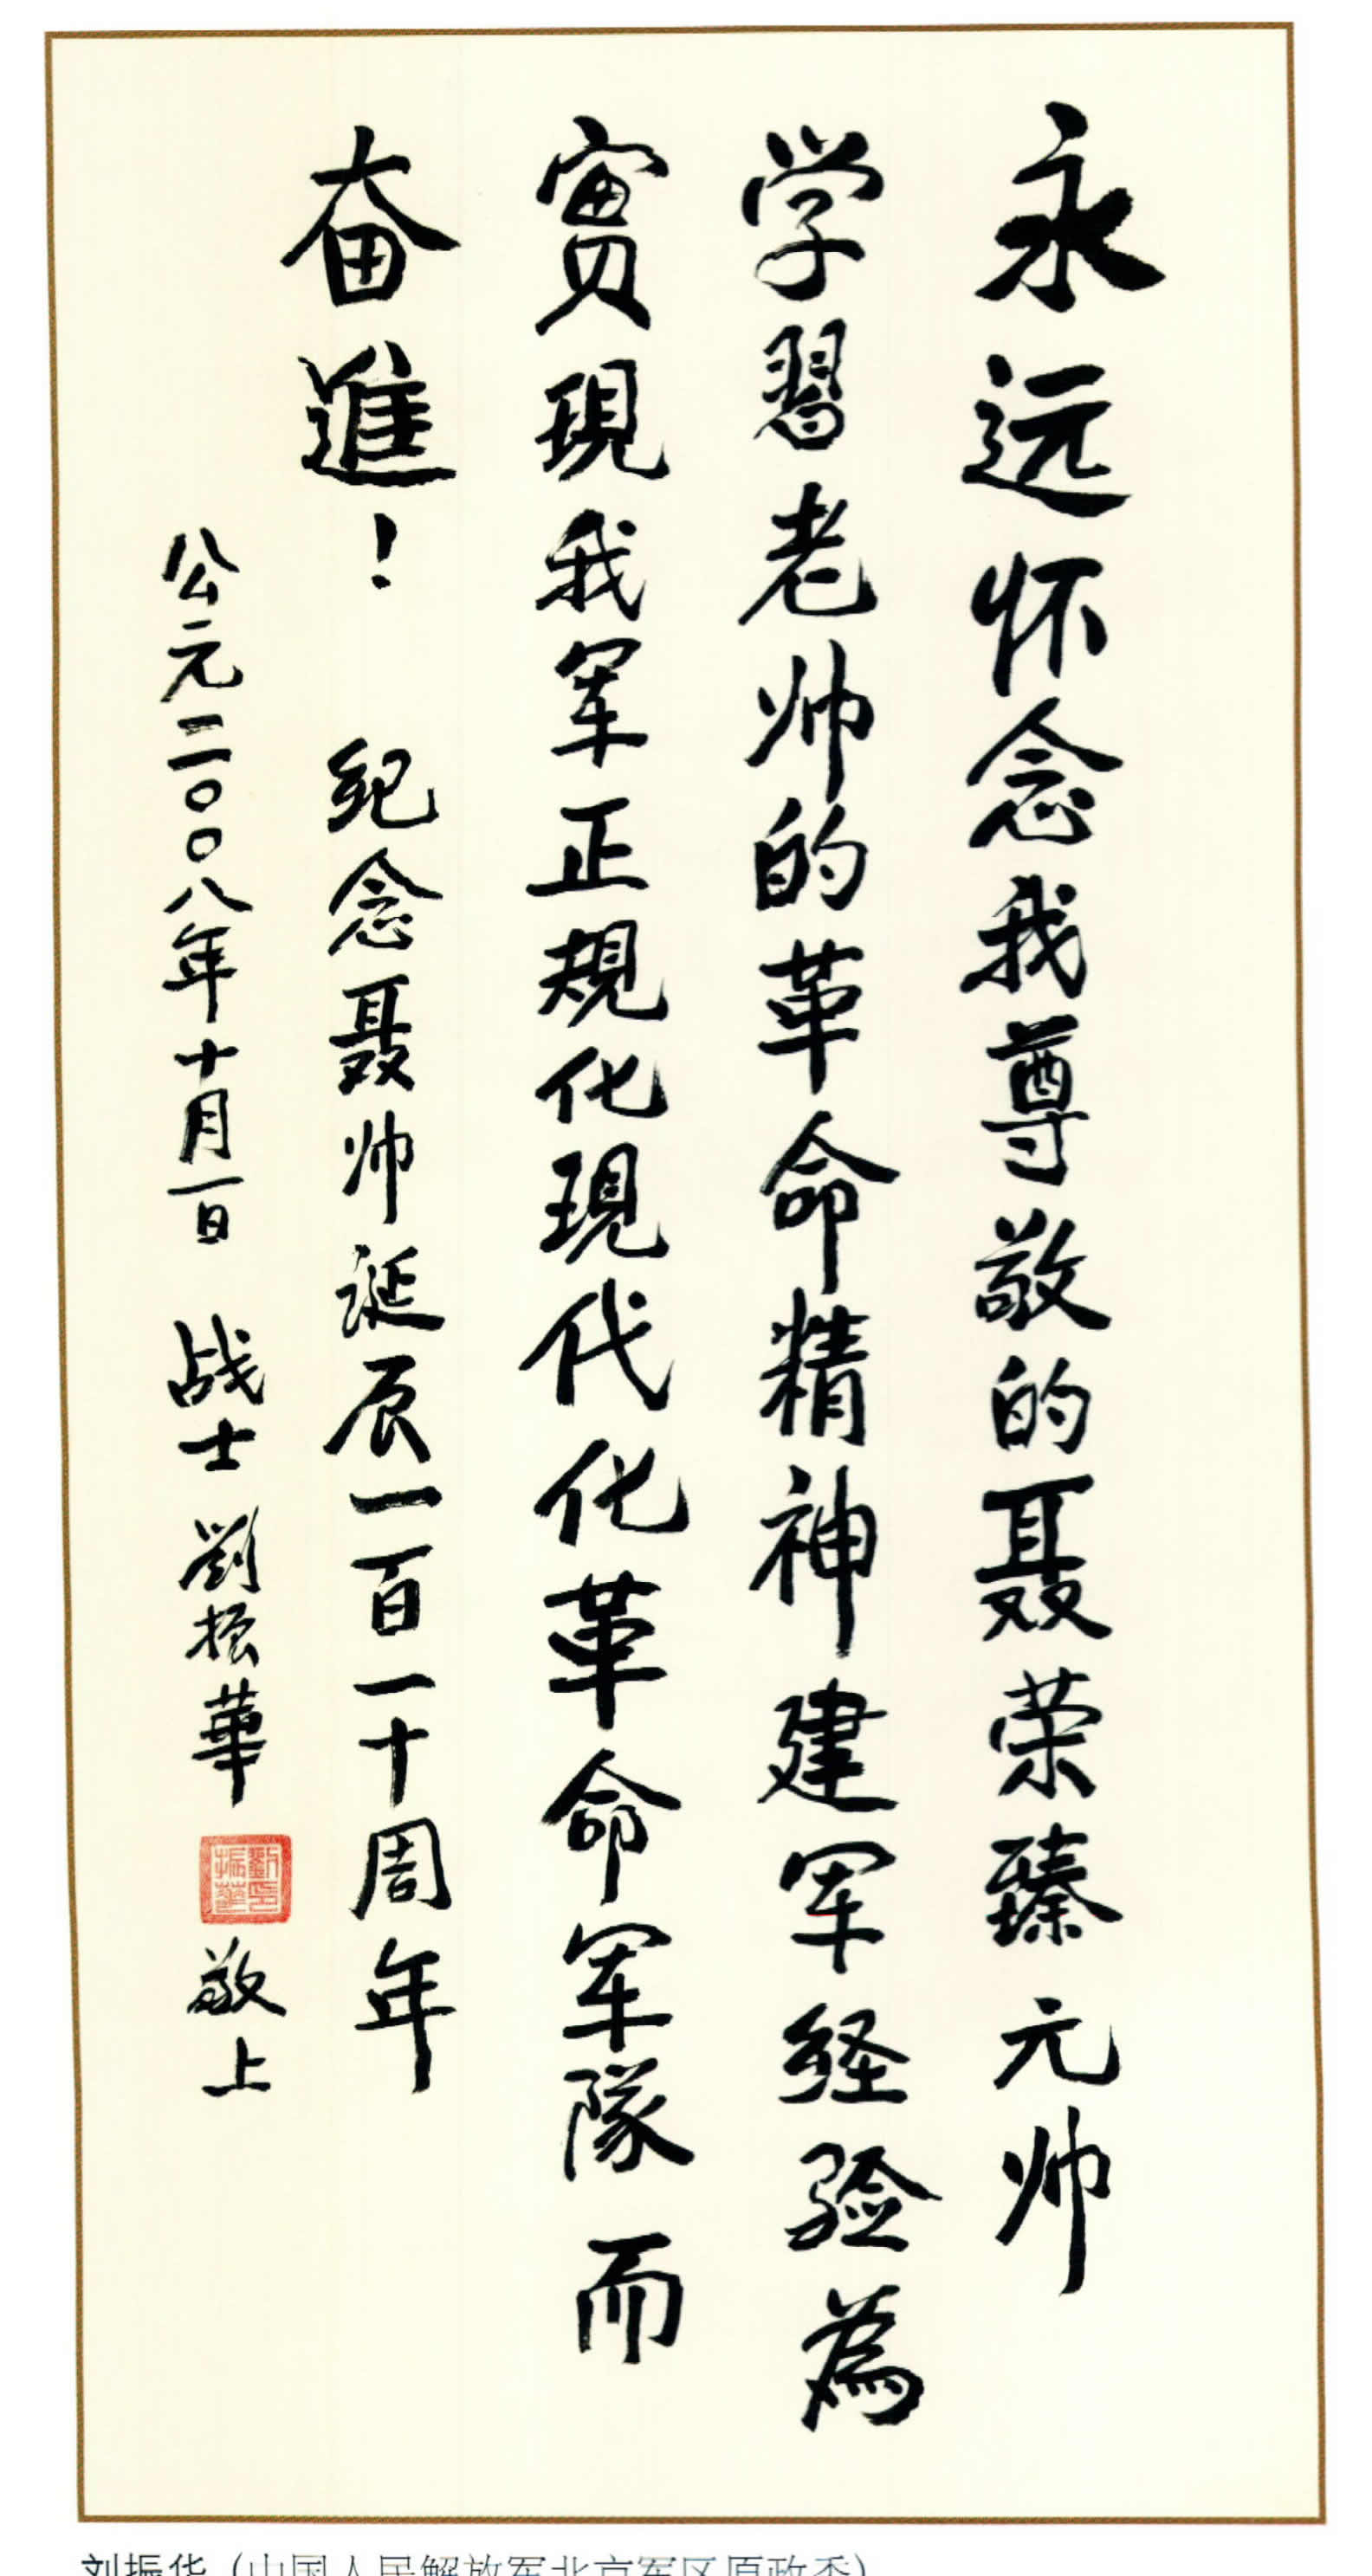 永远怀念我尊敬的聂荣臻元帅
学習老帅的革命精神建军经验為
實現我军正規化現代化革命军隊而
奋進！ 纪念聂帅诞辰一百一十周年
公元二〇〇八年十月一日 战士 劉振華 敬上
刘振华（中国人民解放军北京军区原政委）